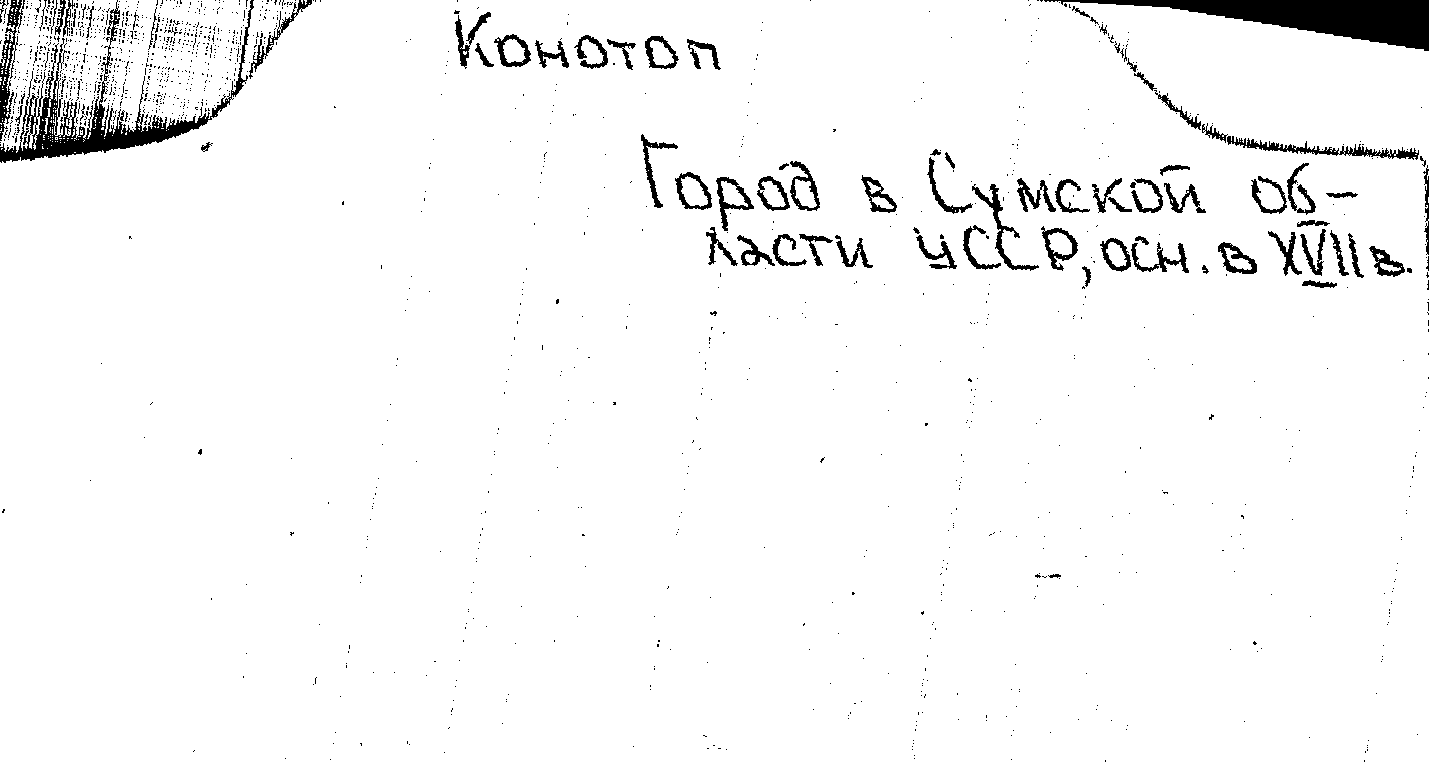 Конотоп
Город в Сумской об-
ласти УССР, осн. в XVII в.